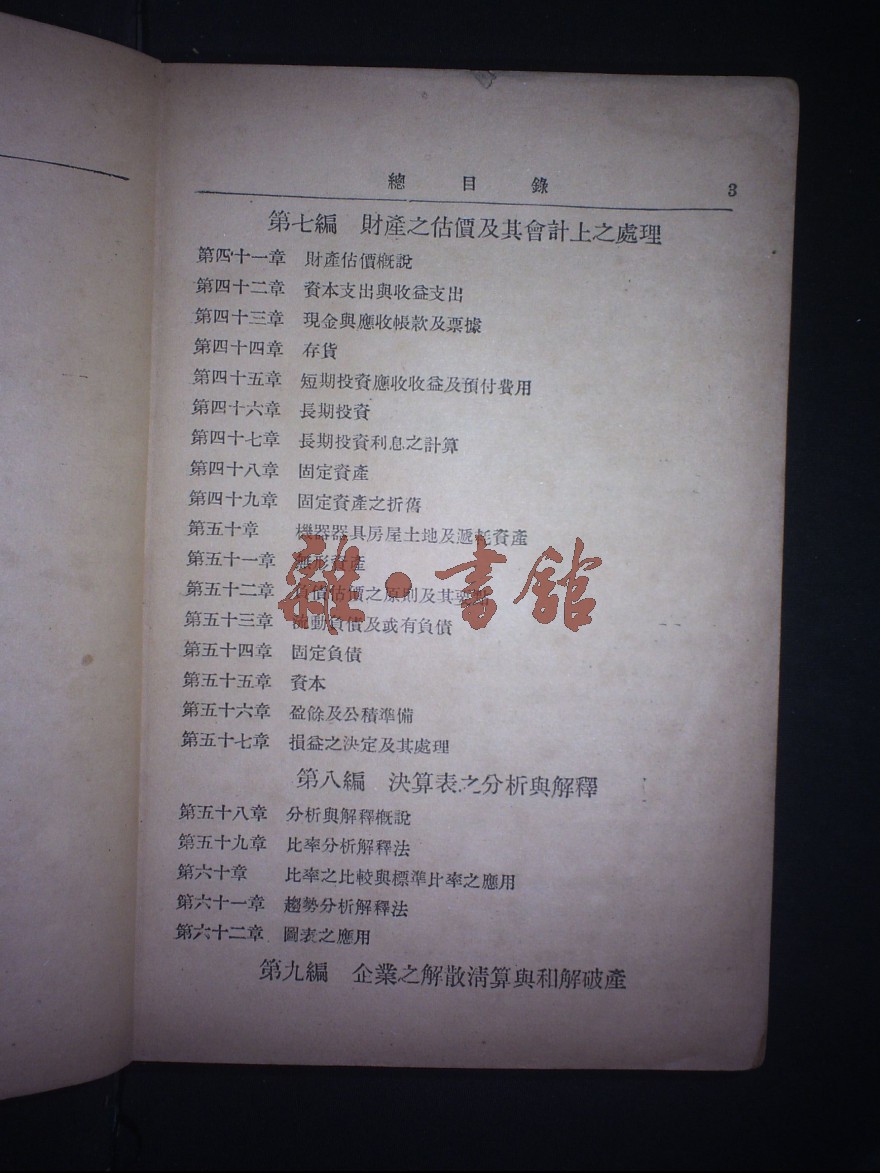 總目錄 3
第七編 財產之估價及其會計上之處理
第四十一章 財產估價概說
第四十二章 資本支出與收益支出
第四十三章 現金與應收帳款及票據
第四十四章 存貨
第四十五章 短期投資應收收益及預付費用
第四十六章 長期投資
第四十七章 長期投資利息之計算
第四十八章 固定資產
第四十九章 固定資產之折舊
第五十章 機器器具房屋土地及遞耗資產
第五十一章 無形資產
第五十二章 負債估價之原則及其要點
第五十三章 流動負債及或有負債
第五十四章 固定負債
第五十五章 資本
第五十六章 盈餘及公積準備
第五十七章 損益之決定及其處理
第八編 決算表之分析與解釋
第五十八章 分析與解釋概說
第五十九章 比率分析解釋法
第六十章 比率之比較與標準比率之應用
第六十一章 趨勢分析解釋法
第六十二章 圖表之應用
第九編 企業之解散淸算與和解破產
雜·書館